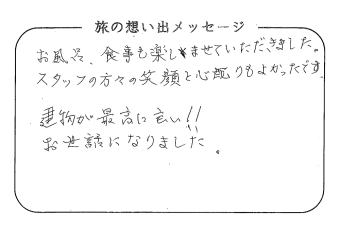 旅の想い出メッセージ
お風呂、食事も楽しませていただきました。
スタッフの方々の笑顔と心配りもよかったです。
建物が最高に良い!!
お世話になりました。